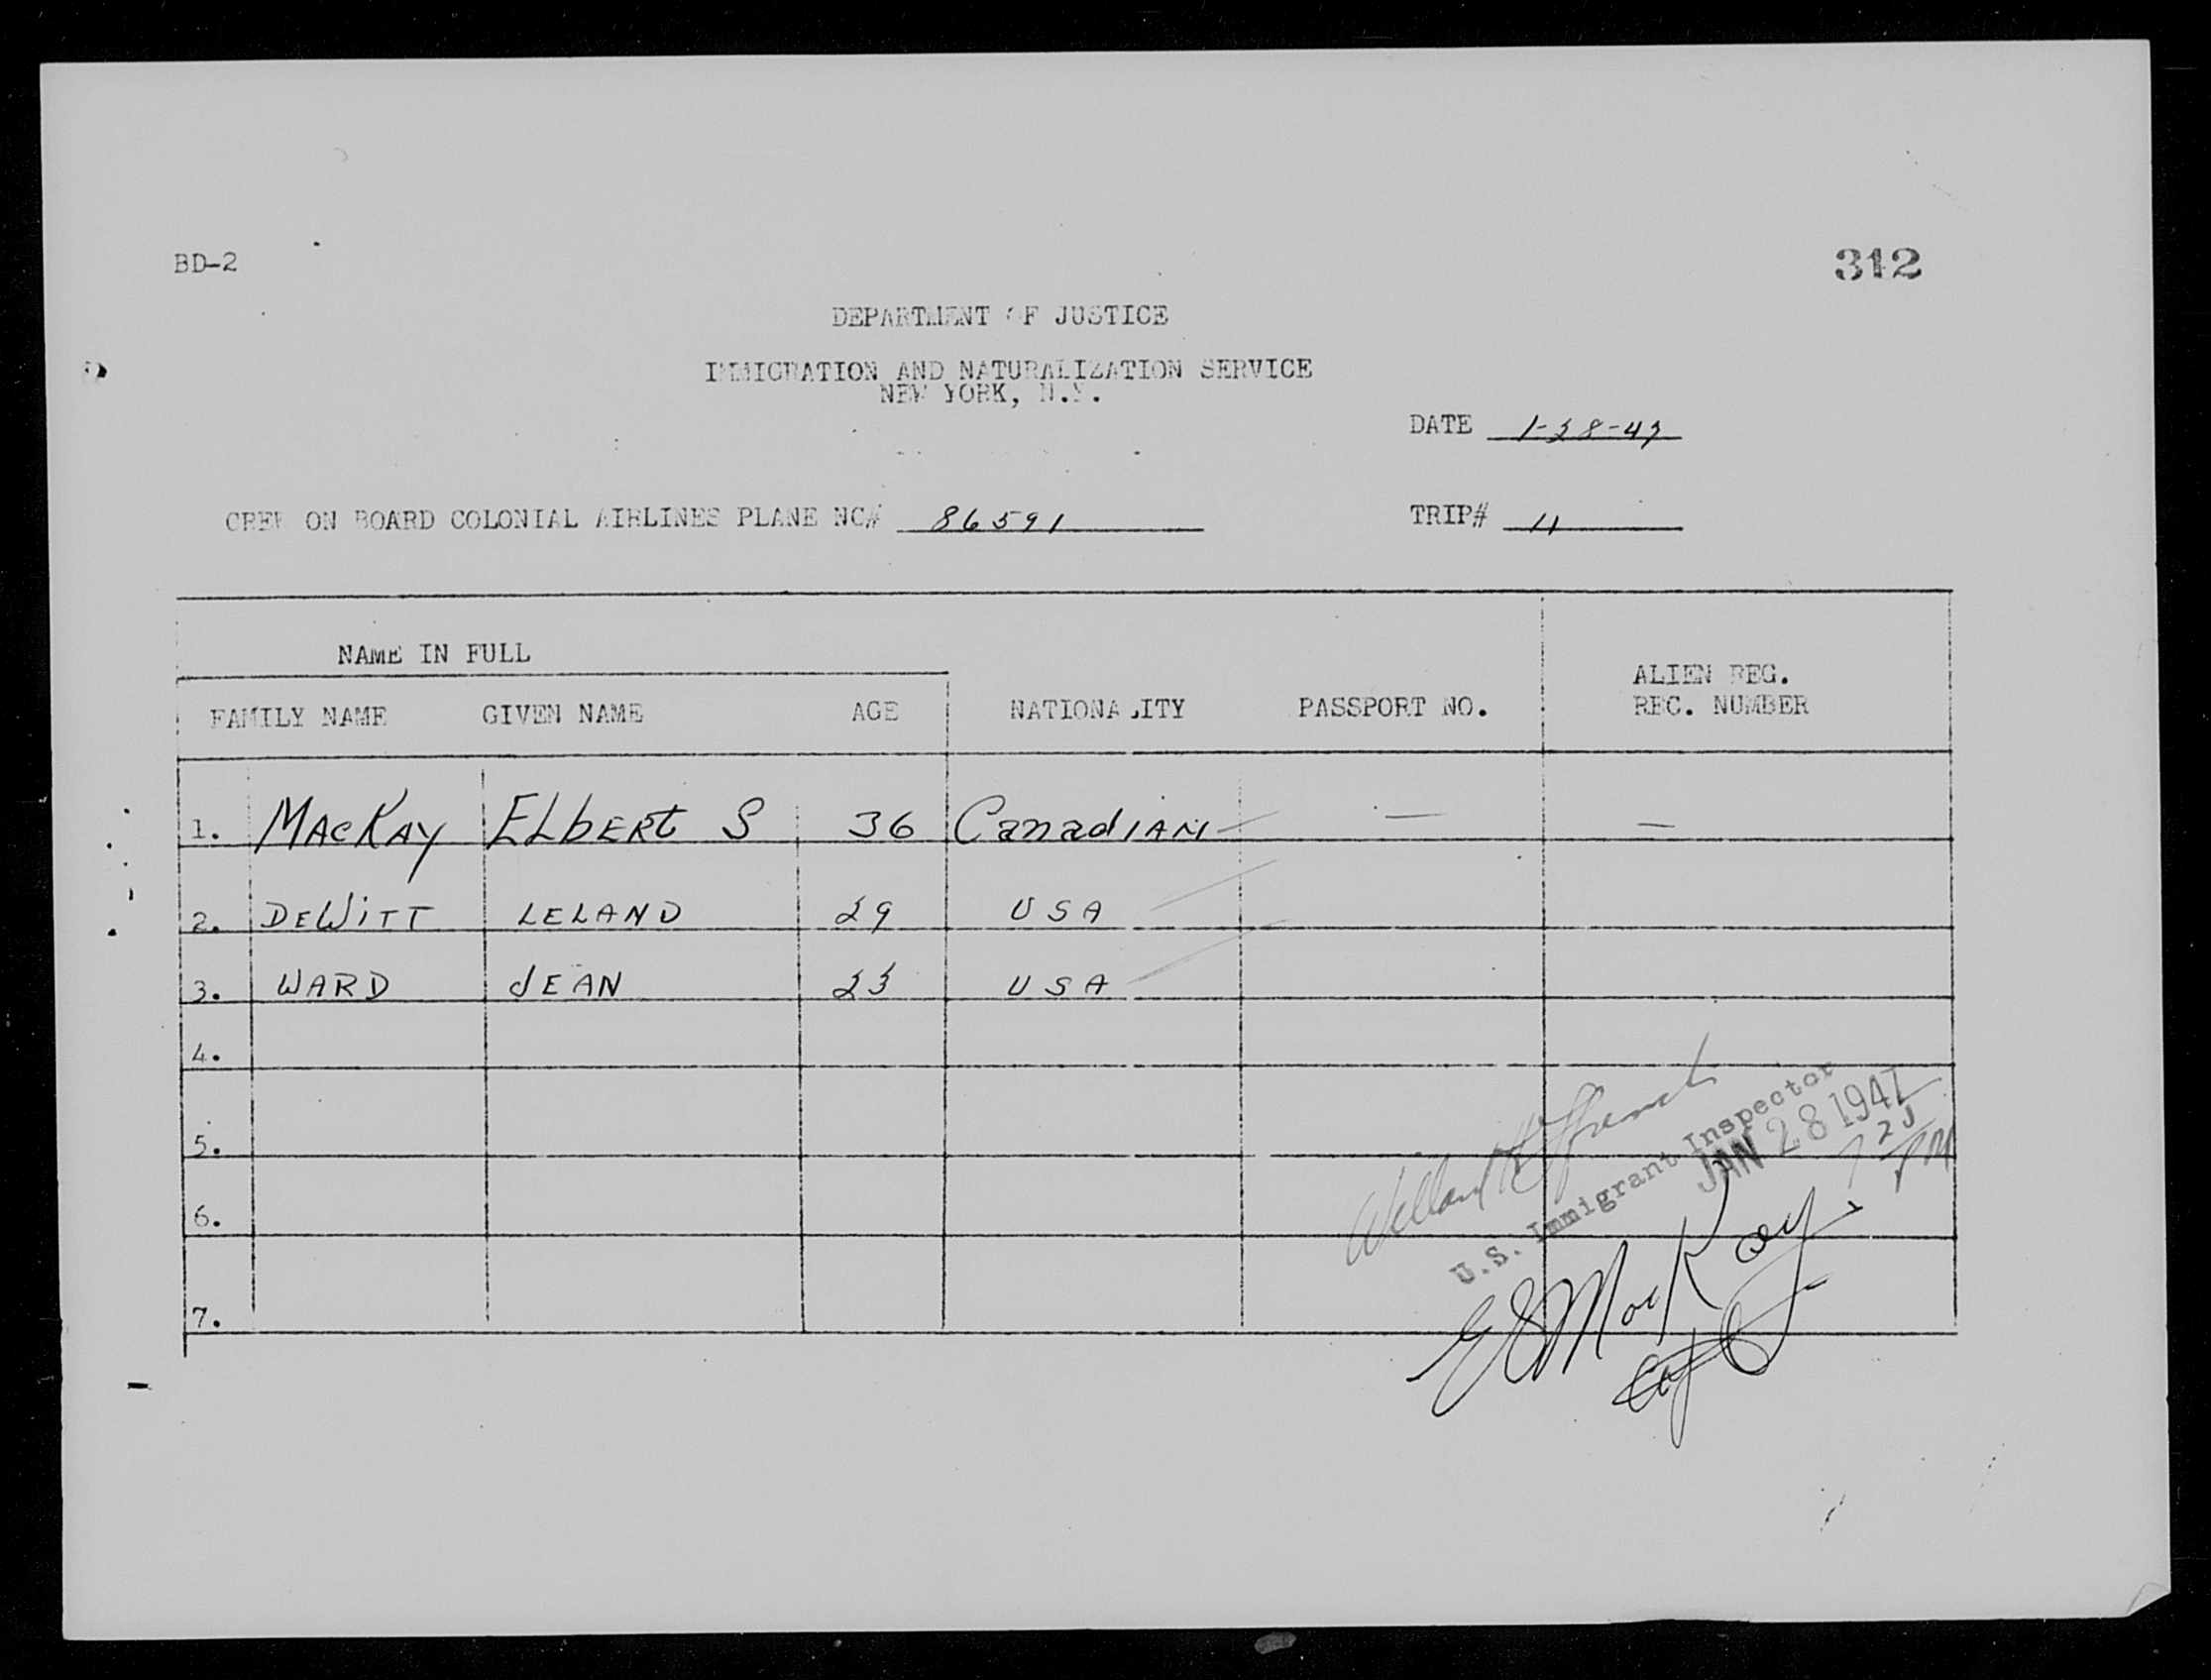 BD-2
312
DEPARTMENT OF JUSTICE
IMMIGRATION AND NATURALIZATION SERVICE
NEW YORK, N.Y.
DATE 1-28-47
CREW ON BOARD COLONIAL AIRLINES PLANE NC# 86591
TRIP# 11
NAME IN FULL
FAMILY NAME GIVEN NAME AGE NATIONALITY PASSPORT NO. ALIEN REG. REC. NUMBER
1. MacKay Elbert S 36 Canadian — —
2. DeWitt LELAND 29 USA
3. WARD JEAN 23 USA
4.
5.
6.
7.
U.S. Immigrant Inspector
JAN 28 1947
PM
E S MacKay